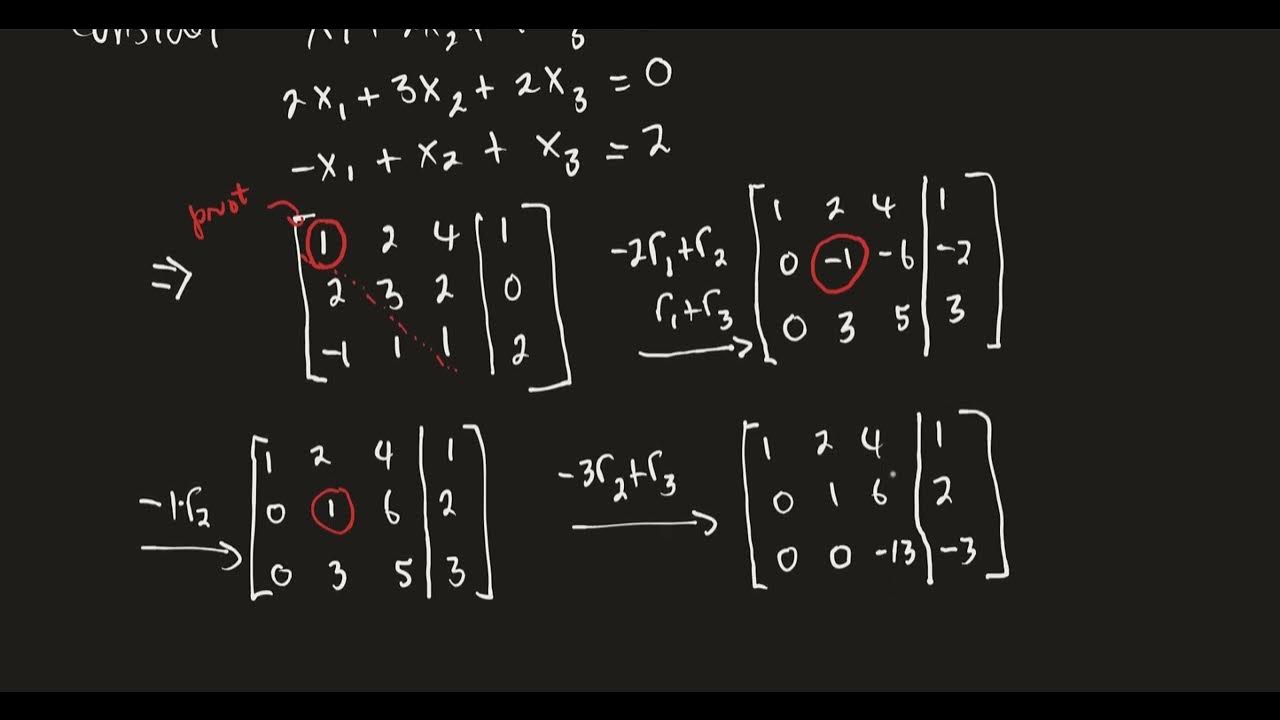 2x₁ + 3x₂ + 2x₃ = 0
-x₁ + x₂ + x₃ = 2
pivot
⇒ [ 1 2 4 | 1 ]
[ 2 3 2 | 0 ]
[ -1 1 1 | 2 ]
-2r₁+r₂
r₁+r₃
→
[ 1 2 4 | 1 ]
[ 0 -1 -6 | -2 ]
[ 0 3 5 | 3 ]
-1·r₂
→
[ 1 2 4 | 1 ]
[ 0 1 6 | 2 ]
[ 0 3 5 | 3 ]
-3r₂+r₃
→
[ 1 2 4 | 1 ]
[ 0 1 6 | 2 ]
[ 0 0 -13 | -3 ]